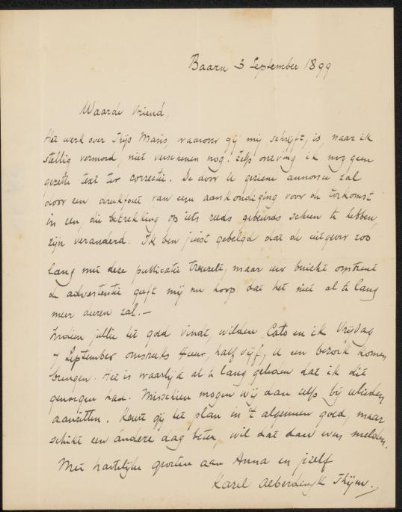 Baarn 3 September 1899
Waarde Vriend,
Het werk over Thijs Maris waarover gij mij schrijft, is, naar ik
stellig vermoed, niet verschenen nog. Zelfs ontving ik nog geen
gezette text ter correctie. De door U geziene annonce zal
door een drukfout van een aankondiging voor de toekomst
in een die betrekking op iets reeds gebeurds scheen te hebben
zijn veranderd. Ik ben juist gebelgd dat de uitgever zoo
lang met deze publicatie treuzelt, maar uw bericht omtrent
de advertentie geeft mij nu hoop dat het niet al te lang
meer duren zal. —
Indien jullie het goed vindt wilden Cato en ik Vrijdag
September omstreeks half vijf, U een bezoek komen
brengen. Het is waarlijk al te lang geleden dat ik dit
genoegen had. Misschien mogen wij dan zelfs bij Ulieden
aanzitten. Keurt gij het plan in 't algemeen goed maar
schikt een andere dag beter, wil dat dan even melden.
Met hartelijke groeten aan Anna en jezelf
Karel Alberdingk Thijm.